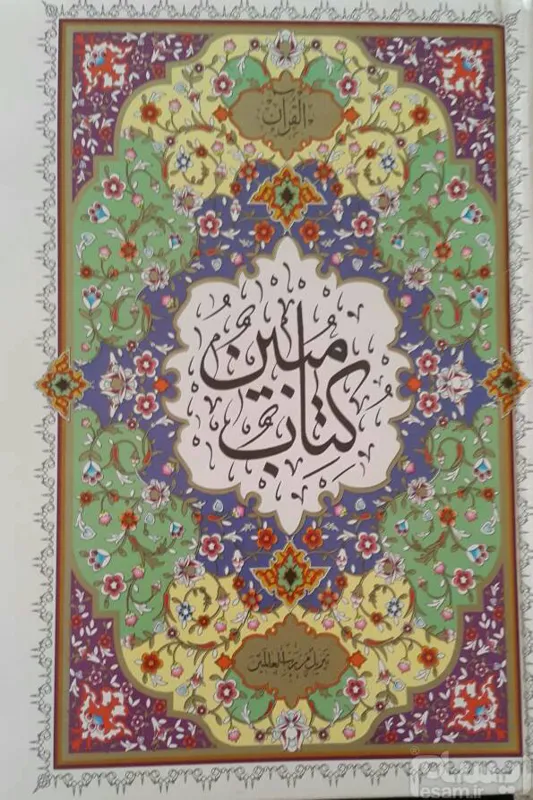 القرآن
كتابٌ مُبينٌ
تنزيل من رب العالمين
esam.ir